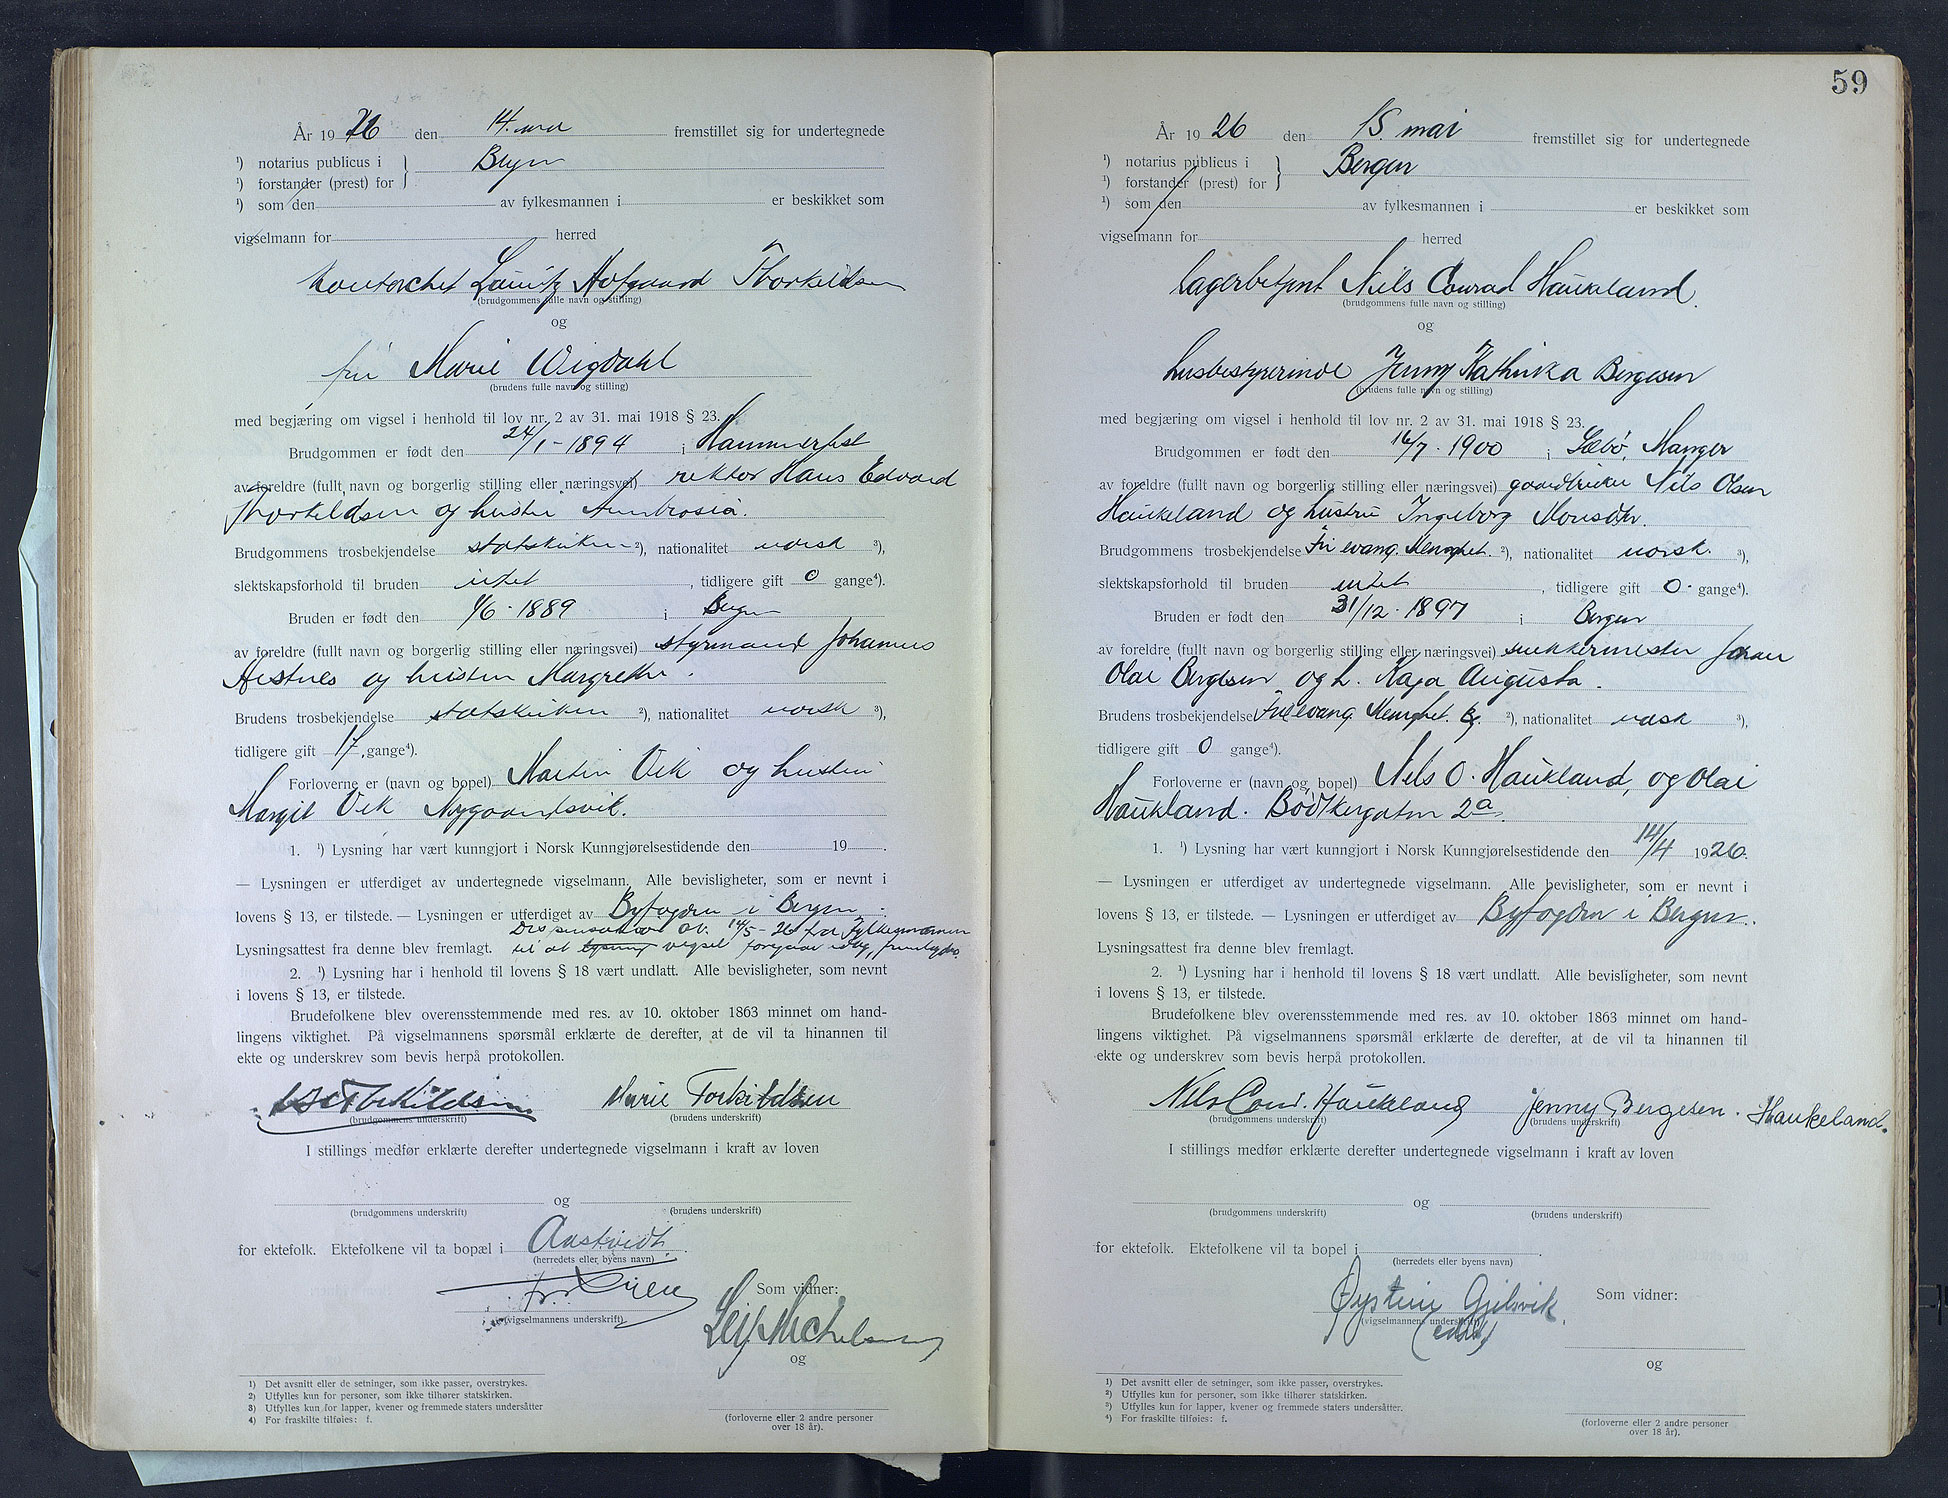 År 1926 den 14. mai fremstillet sig for undertegnede
¹) notarius publicus i } Bergen
¹) forstander (prest) for
¹) som den av fylkesmannen i er beskikket som
vigselmann for herred
kontorchef Lauritz Hofgaard Thorkildsen
(brudgommens fulle navn og stilling)
og
fru Marie Wigdahl
(brudens fulle navn og stilling)
med begjæring om vigsel i henhold til lov nr. 2 av 31. mai 1918 § 23.
Brudgommen er født den 24/1-1894 i Hammerfest
av foreldre (fullt navn og borgerlig stilling eller næringsvei) rektor Hans Edvard
Thorkildsen og hustru Ambrosia.
Brudgommens trosbekjendelse statskirken ²), nationalitet norsk ³),
slektskapsforhold til bruden intet, tidligere gift 0 gange⁴).
Bruden er født den 1/6-1889 i Bergen
av foreldre (fullt navn og borgerlig stilling eller næringsvei) styrmand Johannes
og hustru Margrethe.
Brudens trosbekjendelse statskirken ²), nationalitet norsk ³),
tidligere gift 1f. gange⁴).
Forloverne er (navn og bopel) Martin Vik og hustru
Margit Vik Nygaardsvik.
1. ¹) Lysning har vært kunngjort i Norsk Kunngjørelsestidende den 19 .
— Lysningen er utferdiget av undertegnede vigselmann. Alle bevisligheter, som er nevnt i
lovens § 13, er tilstede. — Lysningen er utferdiget av Byfogden i Bergen.
Dispensation av 14/5-26 fra Fylkesmannen
Lysningsattest fra denne blev fremlagt. til at lysning vigsel foregaar idag, fremlagdes.
2. ¹) Lysning har i henhold til lovens § 18 vært undlatt. Alle bevisligheter, som nevnt
i lovens § 13, er tilstede.
Brudefolkene blev overensstemmende med res. av 10. oktober 1863 minnet om hand-
lingens viktighet. På vigselmannens spørsmål erklærte de derefter, at de vil ta hinannen til
ekte og underskrev som bevis herpå protokollen.
Marie Torkildsen
(brudgommens underskrift) (brudens underskrift)
I stillings medfør erklærte derefter undertegnede vigselmann i kraft av loven
og
(brudgommens underskrift) (brudens underskrift)
for ektefolk. Ektefolkene vil ta bopæl i Aastveidt.
(herredets eller byens navn)
Som vidner:
(vigselmannens underskrift)
Leif Michelsen
og
¹) Det avsnitt eller de setninger, som ikke passer, overstrykes.
²) Utfylles kun for personer, som ikke tilhører statskirken.
³) Utfylles kun for lapper, kvener og fremmede staters undersåtter
⁴) For fraskilte tilføies: f.
(forloverne eller 2 andre personer
over 18 år).
59
År 1926 den 15. mai fremstillet sig for undertegnede
¹) notarius publicus i } Bergen
¹) forstander (prest) for
¹) som den av fylkesmannen i er beskikket som
vigselmann for herred
lagerbetjent Niels Conrad Haukeland.
(brudgommens fulle navn og stilling)
og
husbestyrerinde Jenny Kathinka Bergesen
(brudens fulle navn og stilling)
med begjæring om vigsel i henhold til lov nr. 2 av 31. mai 1918 § 23.
Brudgommen er født den 16/7-1900 i Sæbø, Manger
av foreldre (fullt navn og borgerlig stilling eller næringsvei) gaardbruker Nils Olsen
Haukeland og hustru Ingeborg Monsdtr.
Brudgommens trosbekjendelse Fri evang. Menighet. ²), nationalitet norsk. ³),
slektskapsforhold til bruden intet, tidligere gift 0. gange⁴).
Bruden er født den 31/12-1897 i Bergen
av foreldre (fullt navn og borgerlig stilling eller næringsvei) snekkermester Johan
Olai Bergesen og h. Kaja Augusta.
Brudens trosbekjendelse Fri evang. Menighet. Bg. ²), nationalitet norsk ³),
tidligere gift 0 gange⁴).
Forloverne er (navn og bopel) Nils O. Haukland, og Olai
Haukland. Bødkergaten 2a.
1. ¹) Lysning har vært kunngjort i Norsk Kunngjørelsestidende den 14/4 1926.
— Lysningen er utferdiget av undertegnede vigselmann. Alle bevisligheter, som er nevnt i
lovens § 13, er tilstede. — Lysningen er utferdiget av Byfogden i Bergen.
Lysningsattest fra denne blev fremlagt.
2. ¹) Lysning har i henhold til lovens § 18 vært undlatt. Alle bevisligheter, som nevnt
i lovens § 13, er tilstede.
Brudefolkene blev overensstemmende med res. av 10. oktober 1863 minnet om hand-
lingens viktighet. På vigselmannens spørsmål erklærte de derefter, at de vil ta hinannen til
ekte og underskrev som bevis herpå protokollen.
Nils Conr. Haukeland Jenny Bergesen. Haukeland.
(brudgommens underskrift) (brudens underskrift)
I stillings medfør erklærte derefter undertegnede vigselmann i kraft av loven
og
(brudgommens underskrift) (brudens underskrift)
for ektefolk. Ektefolkene vil ta bopel i .
(herredets eller byens navn)
Øystein Gjelsvik Som vidner:
(vigselmannens underskrift)
og
¹) Det avsnitt eller de setninger, som ikke passer, overstrykes.
²) Utfylles kun for personer, som ikke tilhører statskirken.
³) Utfylles kun for lapper, kvener og fremmede staters undersåtter.
⁴) For fraskilte tilføies: f.
(forloverne eller 2 andre personer
over 18 år).